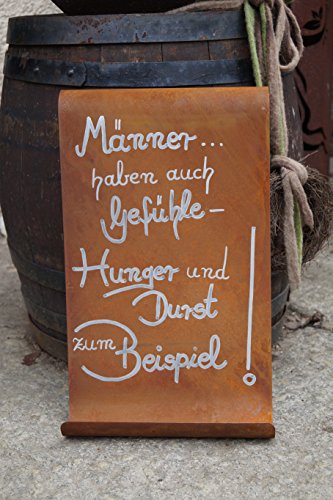 Männer...
haben auch
Gefühle-
Hunger und
Durst
zum Beispiel!